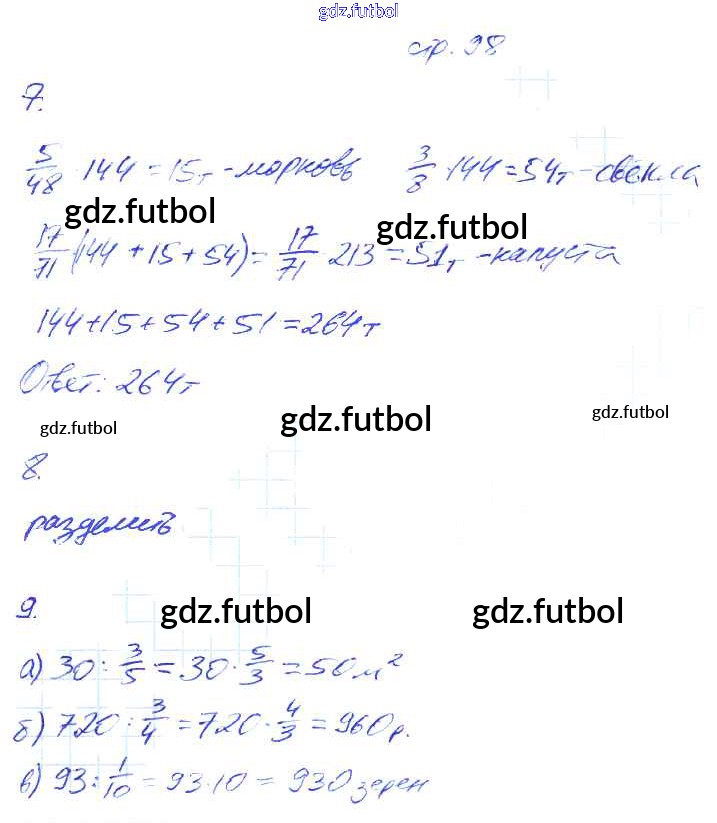 gdz.futbol
стр. 98
7.
5/48 · 144 = 15т - морковь 3/8 · 144 = 54т - свекла
gdz.futbol gdz.futbol
17/71 (144 + 15 + 54) = 17/71 · 213 = 51т - капуста
144 + 15 + 54 + 51 = 264т
Ответ: 264т
gdz.futbol gdz.futbol gdz.futbol
8.
разделить
9. gdz.futbol gdz.futbol
а) 30 : 3/5 = 30 · 5/3 = 50 м²
б) 720 : 3/4 = 720 · 4/3 = 960р.
в) 93 : 1/10 = 93 · 10 = 930 зерен